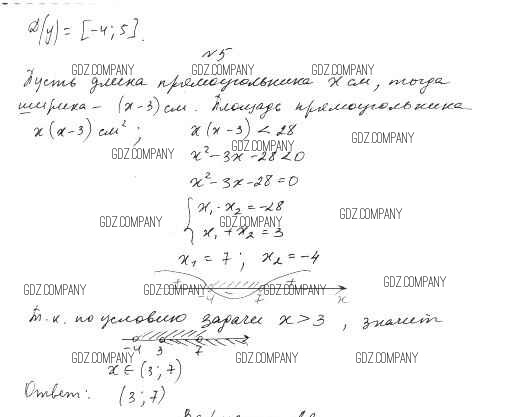 D(y) = [-4; 5].
№5
GDZ.COMPANY GDZ.COMPANY GDZ.COMPANY
Пусть длина прямоугольника x см, тогда
ширина - (x-3) см. Площадь прямоугольника
x(x-3) см²; x(x-3) < 28
GDZ.COMPANY GDZ.COMPANY GDZ.COMPANY
x²-3x-28<0
x²-3x-28=0
{ x₁·x₂ = -28
x₁+x₂ = 3
GDZ.COMPANY GDZ.COMPANY GDZ.COMPANY
x₁ = 7; x₂ = -4
+ -4 - 7 + x
GDZ.COMPANY GDZ.COMPANY GDZ.COMPANY GDZ.COMPANY
Т.к. по условию задачи x>3, значит
-4 3 7
GDZ.COMPANY GDZ.COMPANY GDZ.COMPANY
x ∈ (3; 7)
Ответ: (3; 7)